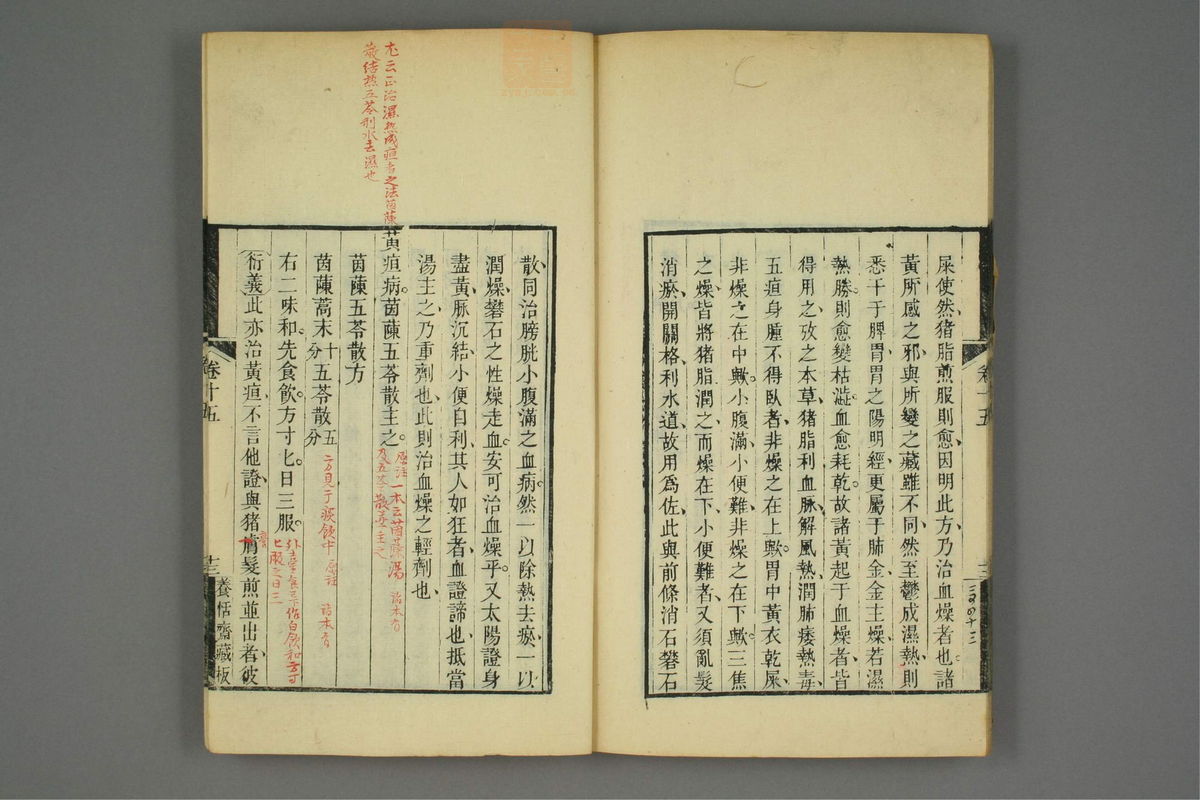 屎使然猪脂煎服則愈因明此方乃治血燥者也諸
黃所感之邪與所變之藏雖不同然至鬱成濕熱則
悉干于脾胃胃之陽明經更屬于肺金金主燥若濕
熱勝則愈變枯澁血愈耗乾故諸黃起于血燥者皆
得用之攷之本草猪脂利血脉解風熱潤肺痿熱毒
五疸身腫不得臥者非燥之在上歟胃中黃衣乾屎
非燥之在中歟小腹滿小便難非燥之在下歟三焦
之燥皆將猪脂潤之而燥在下小便難者又須亂髮
消瘀開關格利水道故用為佐此與前條消石礬石
卷十五
散同治膀胱小腹滿之血病然一以除熱去瘀一以
潤燥礬石之性燥走血安可治血燥乎又太陽證身
盡黃脉沉結小便自利其人如狂者血證諦也抵當
湯主之乃重劑也此則治血燥之輕劑也
黃疸病茵蔯五苓散主之
原注一本云茵蔯湯
及五苓散並主之
諸本有
尤云正治濕熱成疸者之法茵蔯
散結熱五苓利水去濕也
茵蔯五苓散方
茵蔯蒿末十分五苓散五分
二方見于痰飲中 原注 諸本有
右二味和先食飲方寸匕日三服
外臺
作白飲和方寸
匕服日三
衍義此亦治黃疸不言他證與猪膏髮煎並出者彼
卷十五
十三
養恬齋藏板